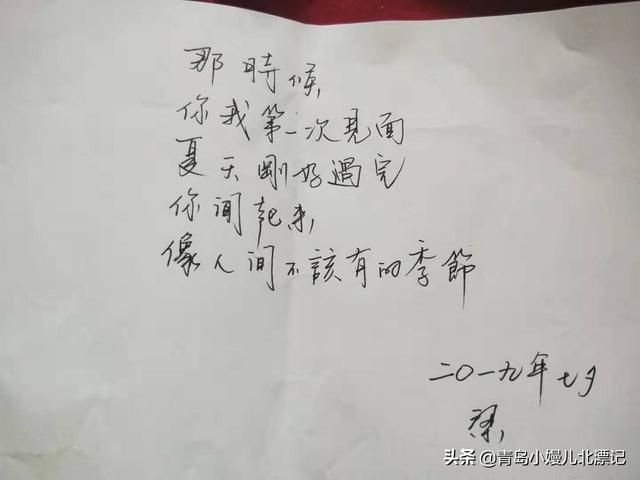 那時候,
你我第一次見面
夏天剛好過完
你聞起來,
像人间不該有的季節
二〇一九年七夕
头条 @青岛小嫚儿北漂记